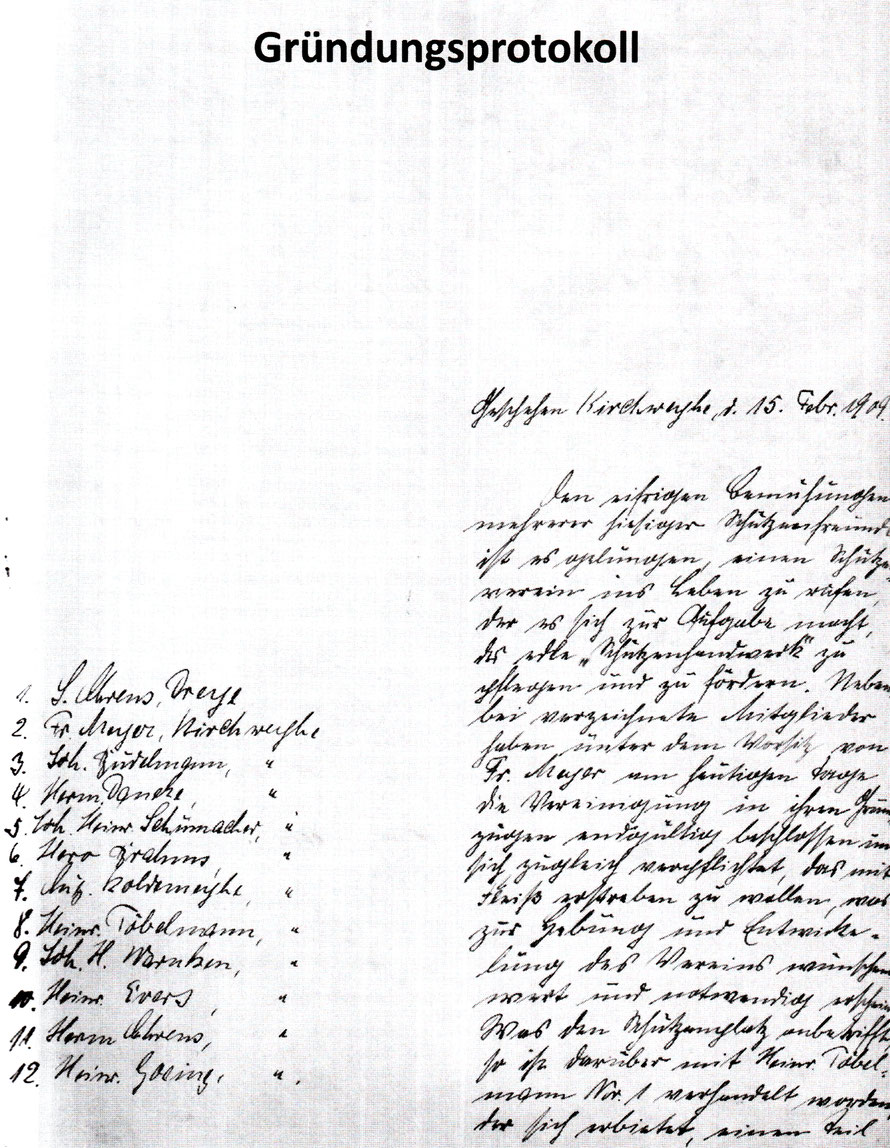 Gründungsprotokoll
Geschehen Kirchweyhe, d. 15. Febr. 1909.
Den eifrigen Bemühungen
mehrerer hiesiger Schützenfreunde
ist es gelungen, einen Schütze
verein ins Leben zu rufen,
der es sich zur Aufgabe macht,
das edle „Schützenhandwerk" zu
pflegen und zu fördern. Neben
bei verzeichnete Mitglieder
haben unter dem Vorsitz von
Fr. Meyer am heutigen Tage
die Vereinigung in ihren Grund
zügen endgültig beschlossen un
sich zugleich verpflichtet, das mit
Fleiß erstreben zu wollen, was
zur Hebung und Entwicke-
lung des Vereins wünschens
wert und notwendig erschein
Was den Schützenplatz anbetrifft,
so ist darüber mit Heinr. Töbel-
mann No. 1 verhandelt worden,
der sich erbietet, einen Teil
1. Ahrens, Dreye
2. Fr. Meyer, Kirchweyhe
3. Joh. "
4. Herm. "
5. Joh. Heinr. Schumacher, "
6. "
7. "
8. Heinr. Töbelmann, "
9. Joh. H. Warnken, "
10. Heinr. Evers, "
11. Herm Ahrens, "
12. Heinr. Goeing, ".